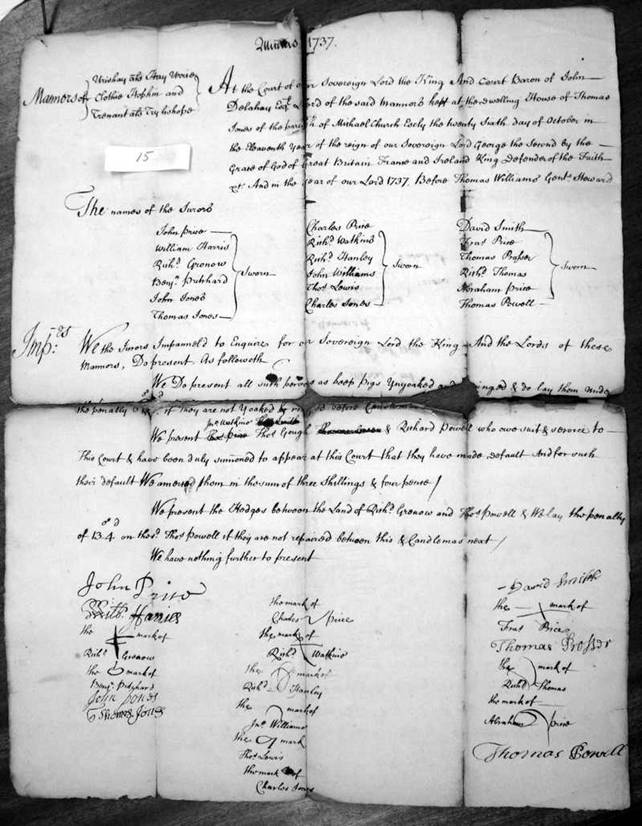 1737.
Mannors of
Urishay als Hay Urishay
Clothie Hopkin and
Trenant als Tryleshope
At the Court of our Sovereign Lord the King And Court Baron of John
Delahay Esqr Lord of the said Mannors kept at the dwelling House of Thomas
Jones of the parish of Michael Church Escly the twenty Sixth day of October in
the Eleaventh Year of the reign of our Sovereign Lord George the Second by the
Grace of God of Great Britain France and Ireland King Defender of the Faith
&c And in the year of our Lord 1737. Before Thomas Williams Gent. Steward
15
The names of the Jurors
John price
William Harris
Richd. Gronow
Benj. Pritchard
John Jones
Thomas Jones
Sworn
Charles Price
Richd Watkins
Richd Hanley
John Williams
Thos Lewis
Charles Jones
Sworn
David Smith
Fras Price
Thomas Proser
Richd Thomas
Abraham price
Thomas Powell
Sworn
Imp:rs We the Jurors Impanneld to Enquire for our Sovereign Lord the King And the Lord of these
Mannors, Do present As followeth
We Do present all such persons as keep Pigs Unyoaked and & do lay them under
the penalty if they are not Yoaked before Candlemas
Jno Watkins
We present Thos Gough & Richard Powell who owe suit & service to
This Court & have been duly summoned to appear at this Court that they have made default And for such
their default We amerced them in the sum of three Shillings & four pence /
We present the Hedges between the Land of Richd Gronow and Thos Powell & We lay the penalty
of 13s 4d on the sd. Thos Powell if they are not repaired between this & Candlemas next /
We have nothing further to present
John Price
Will: Harris
the mark of
Richd Gronow
the mark of
Benj: Pritchard
John Jones
Thomas Jones
the mark of
Charles price
the mark of
Richd Watkins
the mark of
Richd Hanley
the mark of
Jno Williams
the mark
Thos Lewis
the mark of
Charles Jones
David Smith
the mark of
Fras Price
Thomas Prosser
the mark of
Richd Thomas
the mark of
Abraham price
Thomas Powell